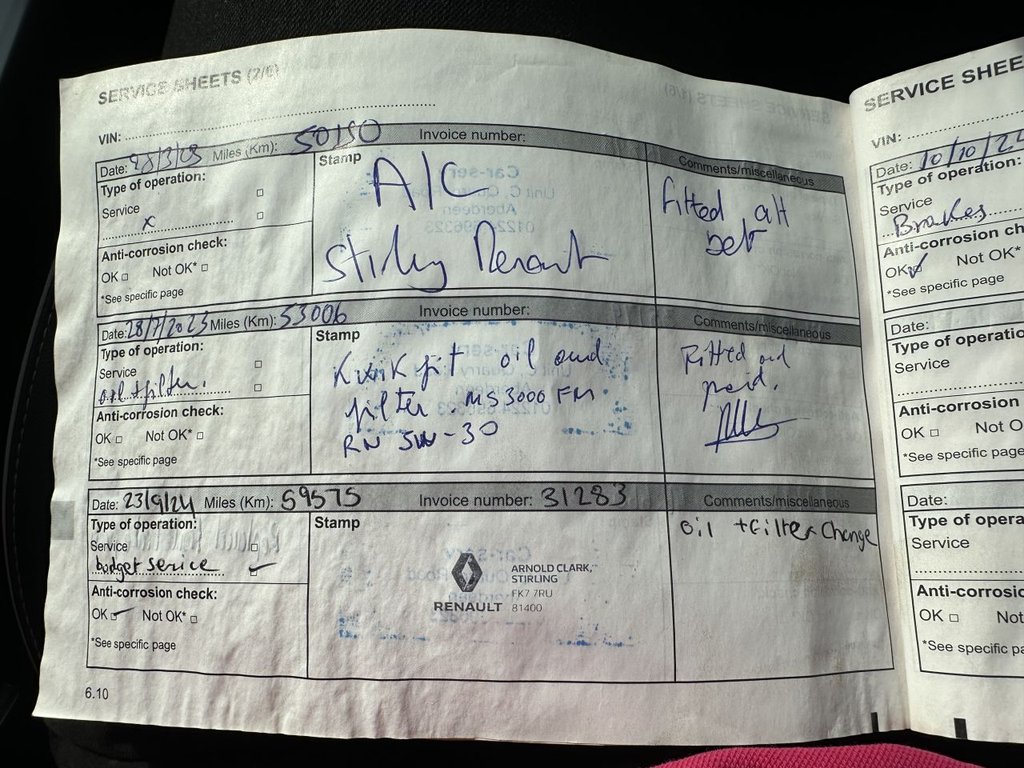 SERVICE SHEETS (2/6)
VIN:
Date: 28/3/03 Miles (Km): 50150 Invoice number:
Type of operation:
Service
x
Anti-corrosion check:
OK Not OK*
*See specific page
Stamp
A/C
Stirling Renault
Comments/miscellaneous
fitted alt
Date: 28/7/2023 Miles (Km): 53006 Invoice number:
Type of operation:
Service
oil + filter.
Anti-corrosion check:
OK Not OK*
*See specific page
Stamp
Kwik fit oil and
filter MS3000 FM
RN 5W-30
Comments/miscellaneous
Fitted and
paid.
Date: 23/9/24 Miles (Km): 59575 Invoice number: 31283
Type of operation:
Service
budget service
Anti-corrosion check:
OK Not OK*
*See specific page
Stamp
RENAULT
ARNOLD CLARK,
STIRLING
FK7 7RU
81400
Comments/miscellaneous
Oil + Filter Change
6.10
SERVICE SHEE
VIN:
Date: 10/10/24
Type of operation:
Service
Brakes
Anti-corrosion ch
OK Not OK*
*See specific page
Date:
Type of operatio
Service
Anti-corrosion
OK Not O
*See specific pa
Date:
Type of opera
Service
Anti-corrosio
OK Not
*See specific pa